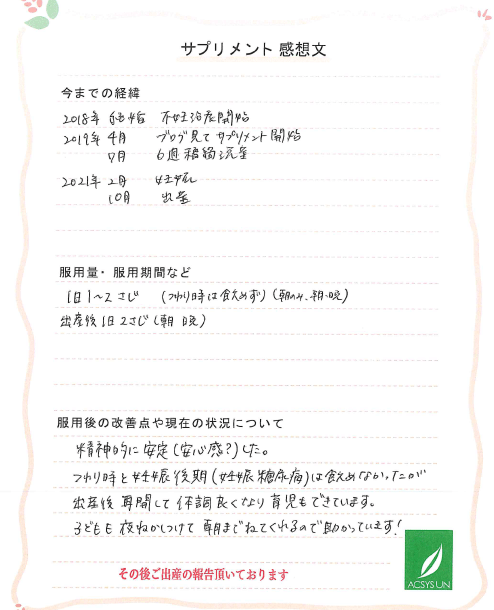 サプリメント 感想文
今までの経緯
2018年 結婚 不妊治療開始
2019年 4月 ブログ見てサプリメント開始
7月 6週稽留流産
2021年 2月 妊娠
10月 出産
服用量・服用期間など
1日1〜2さじ (つわり時は飲めず)(朝のみ、朝・晩)
出産後1日2さじ(朝 晩)
服用後の改善点や現在の状況について
精神的に安定(安心感?)した。
つわり時と妊娠後期(妊娠糖尿病)は飲めなかったが
出産後再開して体調良くなり育児もできています。
子どもも夜ねかしつけて朝までねてくれるので助かっています!
その後ご出産の報告頂いております
ACSYS UN